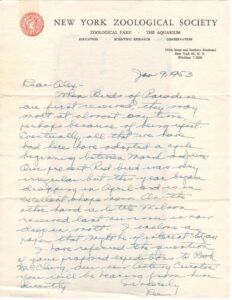 NEW YORK ZOOLOGICAL SOCIETY
ZOOLOGICAL PARK · THE AQUARIUM
EDUCATION · SCIENTIFIC RESEARCH · CONSERVATION
185th Street and Southern Boulevard
New York 60, N. Y.
Jan 9, 1953
Dear Aley -
When Birds of Paradise
are first received they may
molt at almost any time
perhaps because of being upset.
Eventually, all that we have
had here have adopted a cycle
beginning between March and
Our present Red bird was
irregular but this year began
dropping in April and is in
excellent shape now. On the
other hand a Little
received last summer is now
deep in molt. I enclose a
paper that might be of interest to you.
I have referred the question
of your proposed expeditions to Bob
McClung, our
will be hearing from him
directly.
Sincerely